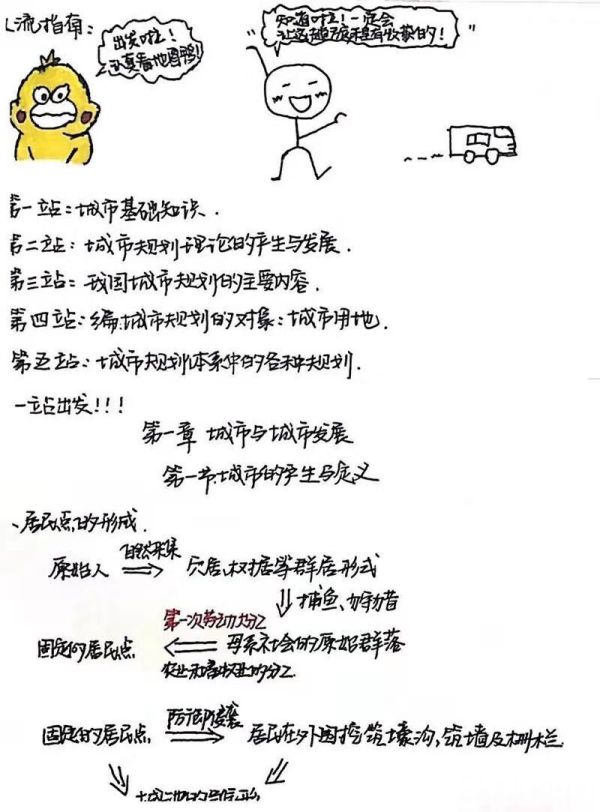 流指南:
出发啦!
认真看地图鸭!
知道啦!一定会
让这趟旅程有收获的!
第一站:城市基础知识.
第二站:城市规划理论的产生与发展.
第三站:我国城市规划的主要内容.
第四站:编城市规划的对象:城市用地.
第五站:城市规划体系中的各种规划.
一站出发!!!
第一章 城市与城市发展
第一节.城市的产生与定义
、居民点的形成.
自然采集
原始人 ⇒ 穴居、树居等群居形式
⇓ 捕鱼、狩猎
第一次劳动大分工
固定的居民点 ⇐ 母系社会的原始群落
农业和畜牧业的分工
防御侵袭
固定的居民点 ⇒ 居民在外围挖筑壕沟、筑墙及栅栏